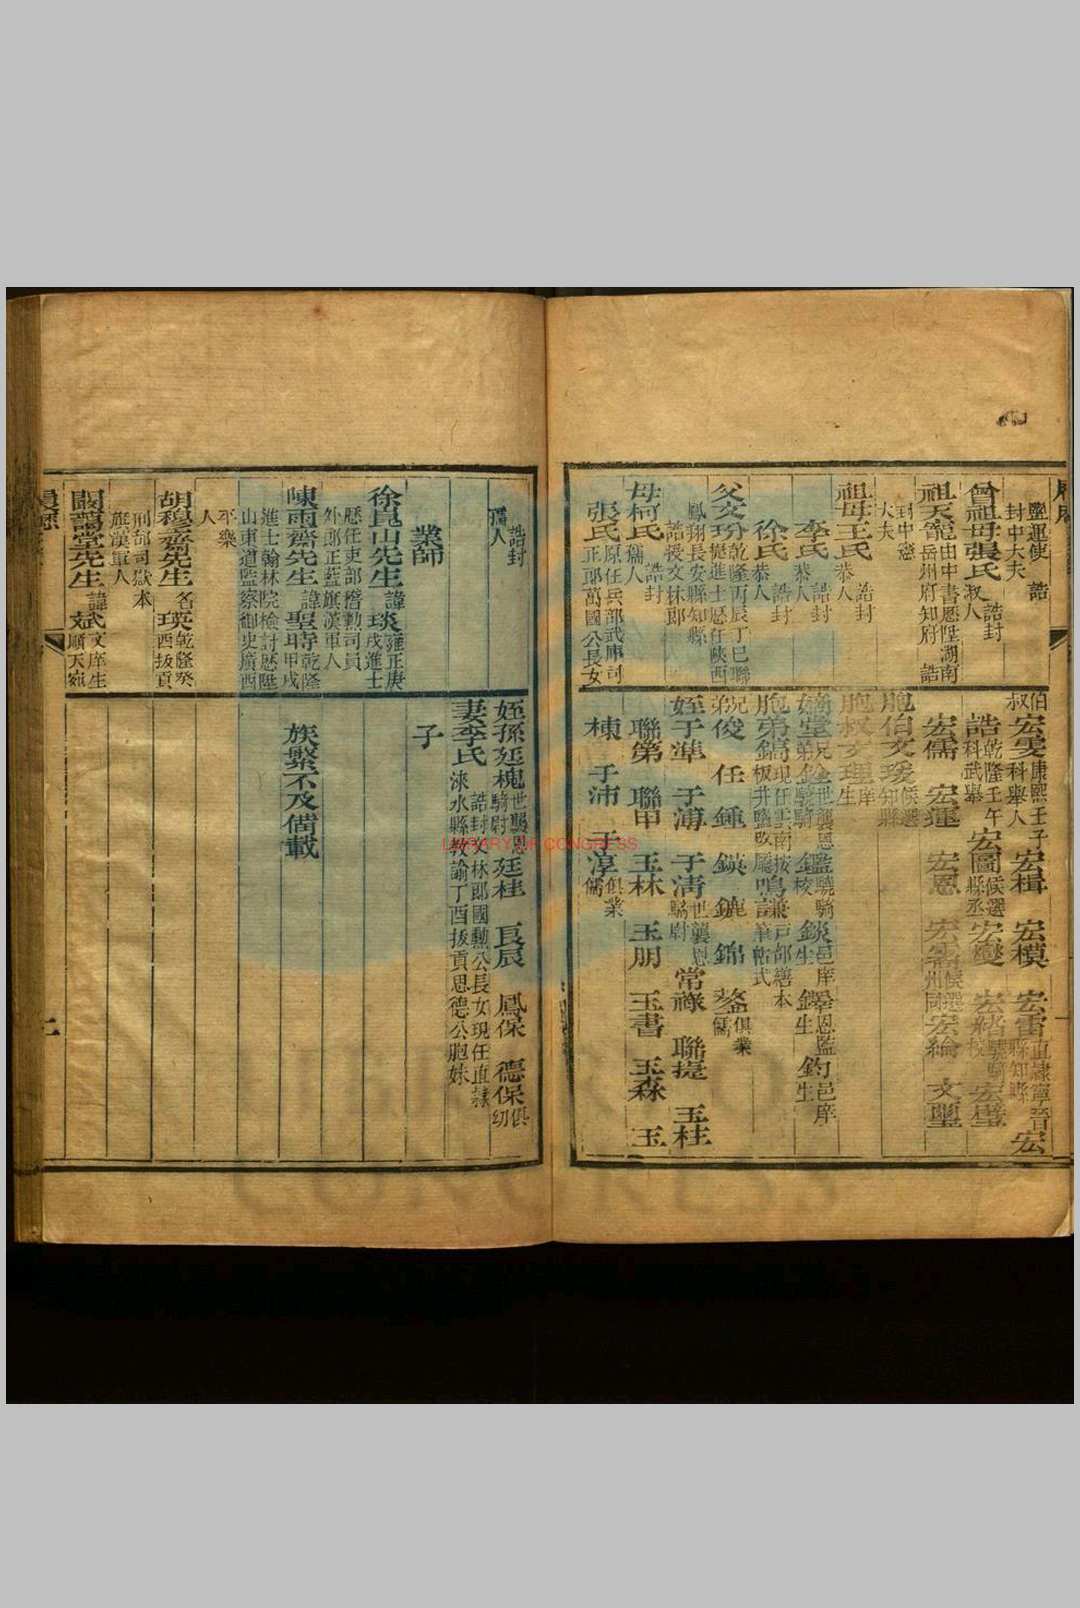 鹽運使 誥
封中大夫
曾祖母張氏 誥封
淑人
祖天寵 由中書歷陞湖南
岳州府知府 誥
封中憲
大夫
祖母王氏 誥封
恭人
李氏 誥封
恭人
徐氏 誥封
恭人
父文玢 乾隆丙辰丁巳聯
捷進士歷任陝西
鳳翔長安縣知縣
誥授文林郎
母柯氏 誥封
孺人
張氏 原任兵部武庫司
正郎萬國公長女
伯
叔 宏雯 康熙壬子
科舉人 宏楫 宏模 宏雷 直隸寧晉
縣知縣 宏
誥 乾隆壬午
科武舉 宏圖 候選
縣丞 宏變
宏璧
宏儒 宏運 宏恩
宏綸 文璽
胞伯文瑗 候選
知縣
胞叔文理 庠
生
堂兄
弟
世襲恩
騎
鑑 驍騎
校 錟 邑庠
生 鐸 恩監
生 鈞 邑庠
生
胞弟鎬 現任雲南按
板井鹽 鳴謙 戶部繕本
筆帖式
兄
弟 俊 任 鍾 鍈 鏕 錦 鎣 俱業
儒
姪子準 子溥 子清 世襲恩
騎尉 常祿 聯提 玉柱
聯第 聯甲 玉林 玉朋 玉書 玉森 玉
棟 子沛 子淳 俱業
儒
誥封
孺人
業師
徐昆山先生 諱琰 雍正庚
戌進士
歷任吏部稽勳司員
外郎正藍旗漢軍人
陳雨齋先生 諱聖時 乾隆
甲戌
進士翰林院檢討歷陞
山東道監察御史廣西
平樂
人
胡穆齋先生 名瑛 乾隆癸
酉拔貢
刑部司獄本
旗漢軍人
閻藹堂先生 諱斌 文庠生
順天宛
姪孫廷槐 世襲恩
騎尉 廷桂 良辰 鳳保 德保 俱
幼
妻李氏 誥封文林郎國勲公長女現任直隸
淶水縣教諭丁酉拔貢恩德公胞妹
子
族繁不及備載
LIBRARY OF CONGRESS